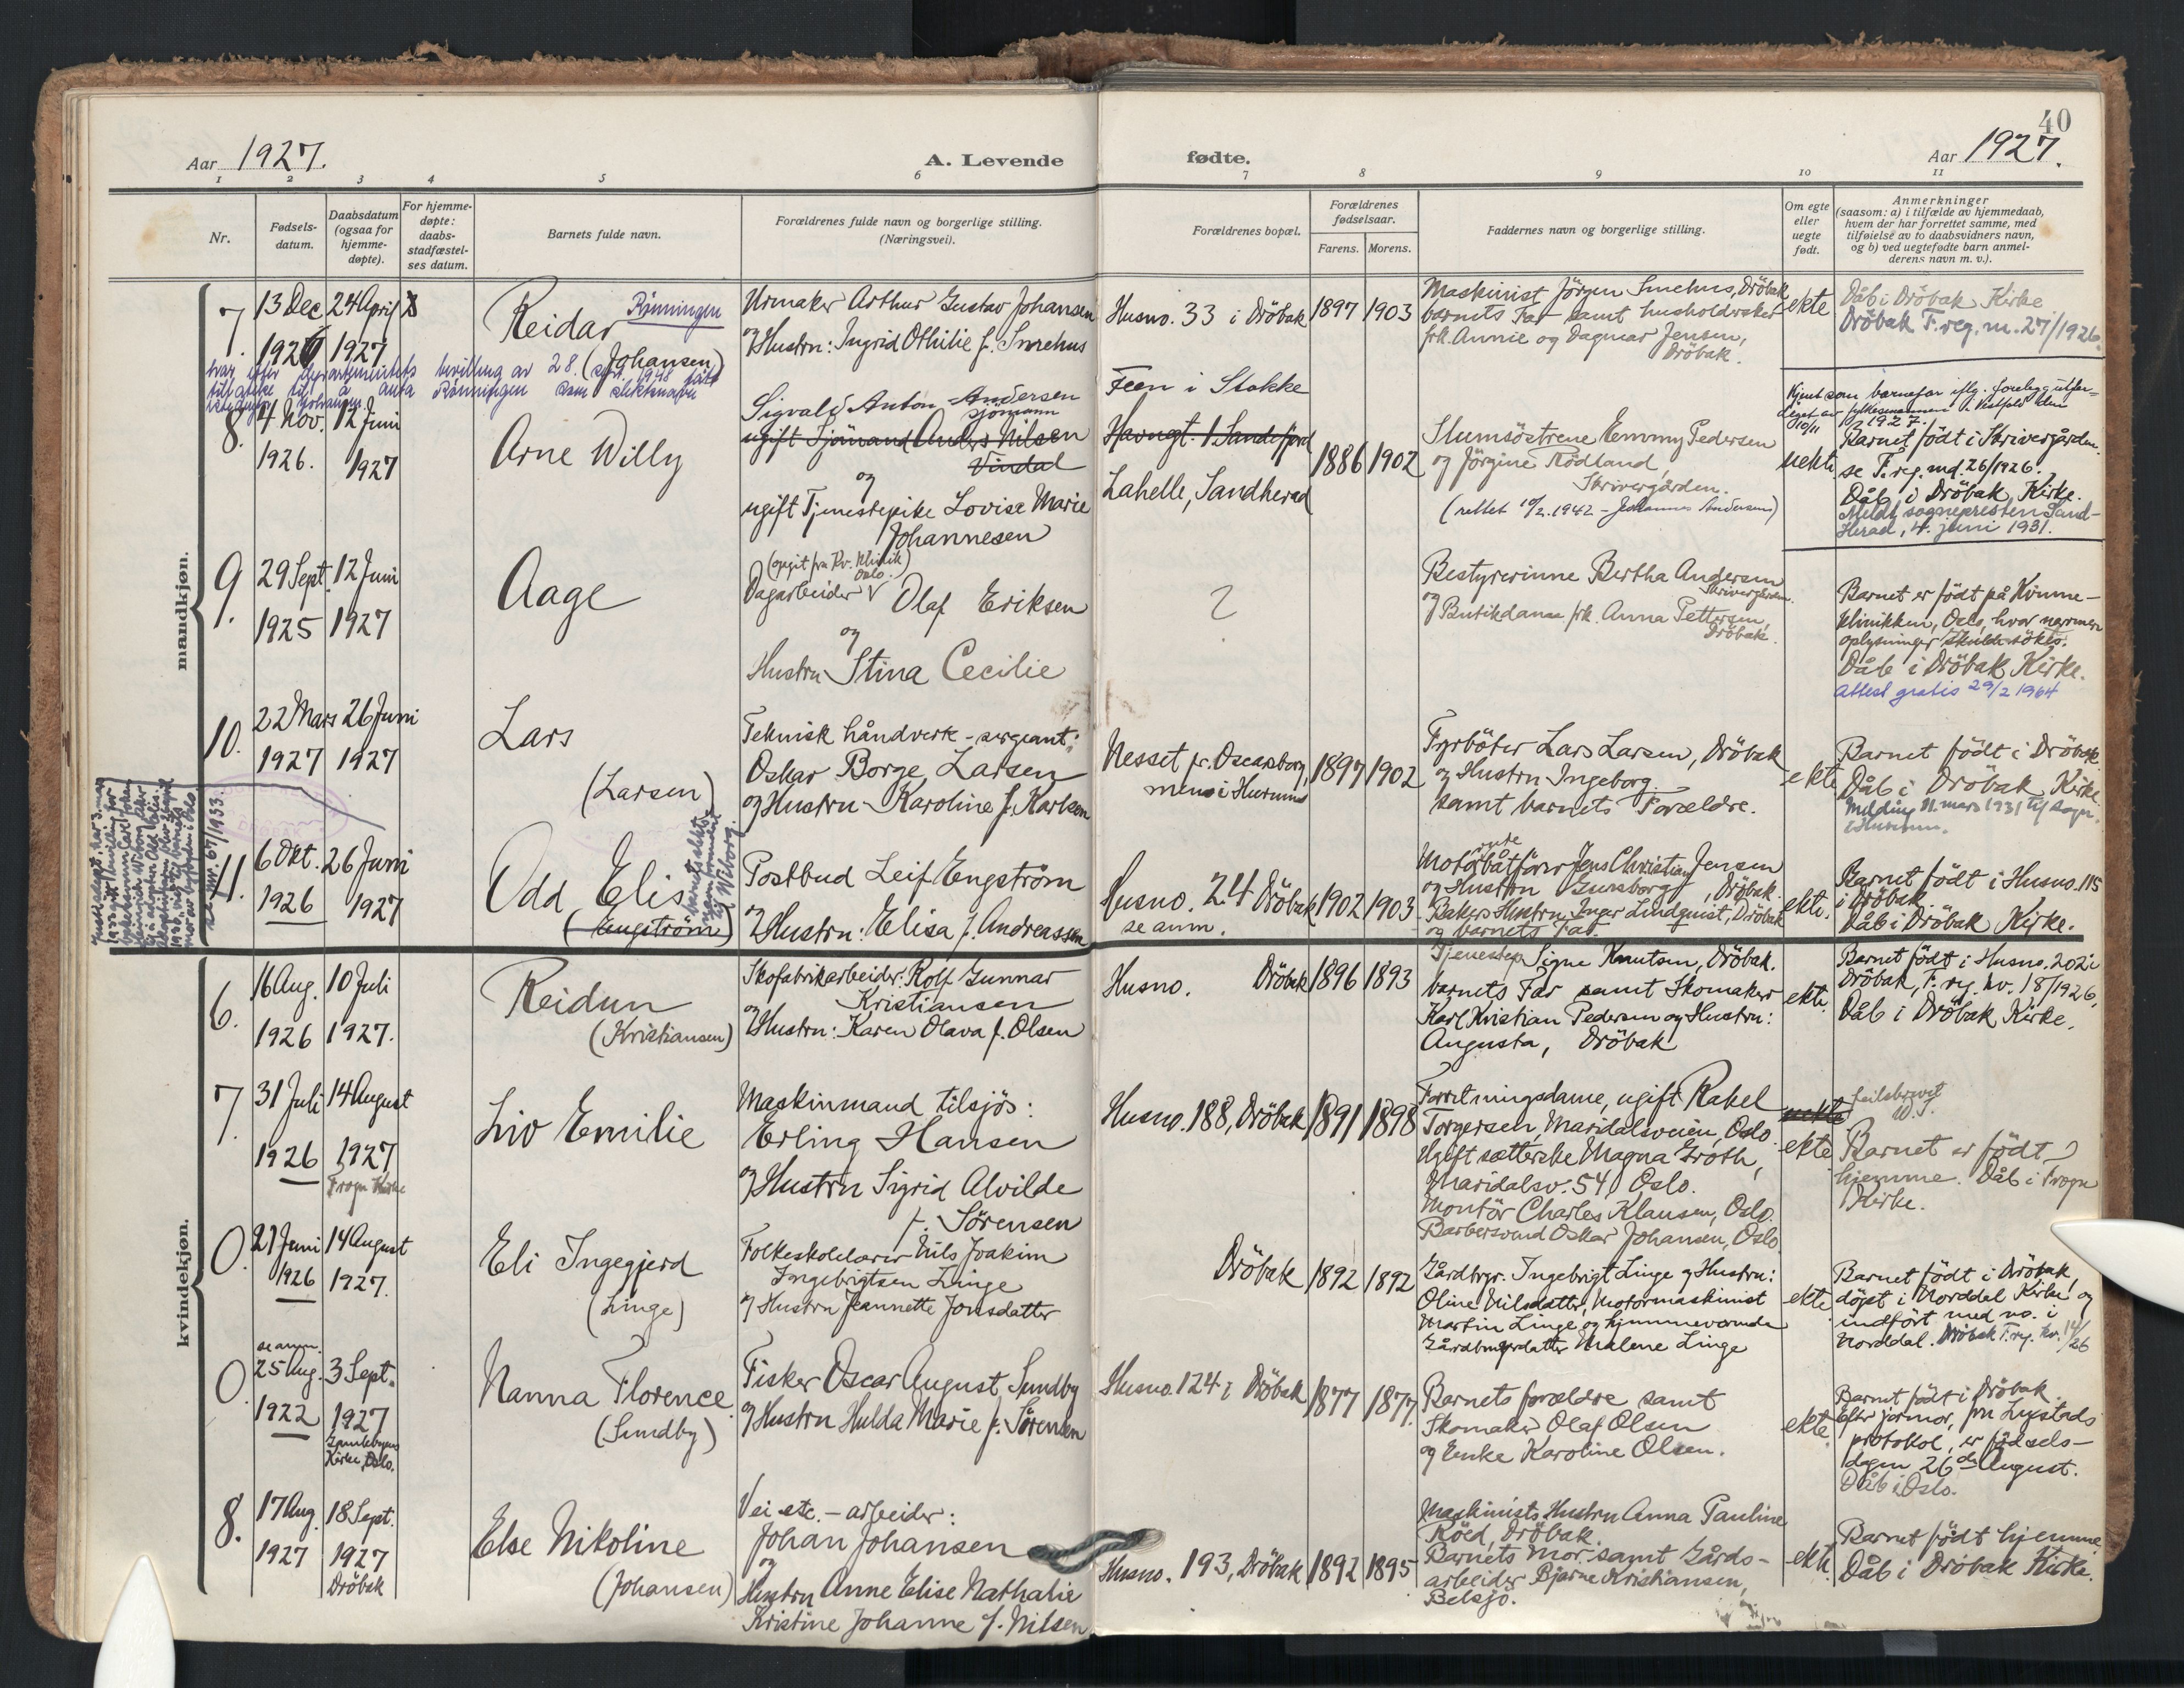 40
Aar 1927.
A. Levende fødte.
Aar 1927.
1 2 3 4 5 6 7 8 9 10 11
Nr.
Fødsels-
datum.
Daabsdatum
(ogsaa for
hjemme-
døpte).
For hjemme-
døpte:
daabs-
stadfæstel-
ses datum.
Barnets fulde navn.
Forældrenes fulde navn og borgerlige stilling.
(Næringsvei).
Forældrenes bopæl.
Forældrenes
fødselsaar.
Farens. Morens.
Faddernes navn og borgerlige stilling.
Om egte
eller
uegte
født.
Anmerkninger
(saasom: a) i tilfælde av hjemmedaab,
hvem der har forrettet samme, med
tilføielse av to daabsvidners navn,
og b) ved uegtefødte barn anmel-
derens navn m. v.).
mandkjøn.
7.
13 Dec
1926
24 April
1927
Reidar Rønningen
(Johansen)
Urmaker Arthur Gustav Johansen
og Hustru: Ingrid Othilie f. Smehus
Husno. 33 i Dröbak
1897 1903
Maskinist Jörgen Smehus, Dröbak
barnets Far samt husholderske
frk. Annie og Dagmar Jensen,
Dröbak.
ekte
Dåb i Dröbak Kirke
Dröbak F.reg. m. 27/1926.
har efter departementets bevilling av 28. sept. 1948 fått
til å anta Rønningen som slektsnavn
8.
4 Nov.
1926.
12 Juni
1927
Arne Willy
Sigvald Anton Andersen
sjömann
ugift Sjömand Anders Nilsen
Vindal
og
ugift Tjenestepike Lovise Marie
Johannesen
Feen i Stokke
Havngt. 1 Sandefjord
Lahelle, Sandherad
1886 1902
Slumsöstrene Emmy Pedersen
og Jörgine Rödland,
Skrivergården.
(rettet 10/2.1942 - Johannes Andersen)
uekte
Kjent som barnefar iflg. forelegg utfer-
diget av fylkesmannen i Vestfold den
10/11 1927.
Barnet födt i Skrivergården.
se F.reg. md. 26/1926.
Dåb i Dröbak Kirke.
Meldt sognepresten Sand-
herad, 4. juni 1931.
9.
29 Sept.
1925
12 Juni
1927
Aage
(opgit fra Kv. Klinik
Oslo.)
Dagarbeider Olaf Eriksen
og
Hustru Stina Cecilie
?
Bestyrerinne Bertha Andersen
Skrivergården.
og Butikdame frk. Anna Pettersen,
Dröbak.
Barnet er födt på Kvinne-
klinikken, Oslo, hvor nærmere
oplysninger skulde sökes.
Dåb i Dröbak Kirke.
Attest gratis 29/2 1964
10.
22 Mars
1927
26 Juni
1927
Lars
(Larsen)
Teknisk håndverk-sergeant:
Oskar Borge Larsen
og Hustru Karoline f. Karlsen
Nesset pr. Oscarsborg,
men i Hurum
1897 1902
Fyrböter Lars Larsen, Dröbak
og Hustru Ingeborg
samt barnets Forældre.
ekte
Barnet födt i Dröbak.
Dåb i Dröbak Kirke.
Melding 11. mars 1931 til sogn.
i Hurum.
11.
6 Okt.
1926
26 Juni
1927
Odd Elis
(Engström)
Postbud Leif Engström
og Hustru: Elisa f. Andreassen
Husno. 24 Dröbak
se anm.
1902 1903
rute
Motorbåtförer Jens Christian Jensen
og Hustru Gunsborg, Dröbak.
Bakers Hustru Inger Lindquist, Dröbak
og barnets Far.
ekte.
Barnet födt i Husno. 115
i Dröbak.
Dåb i Dröbak Kirke.
kvindekjøn.
6.
16 Aug.
1926
10 Juli
1927.
Reidun
(Kristiansen)
Skofabrikarbeider: Rolf Gunnar
Kristiansen
og Hustru: Karen Olava f. Olsen
Husno. Dröbak
1896 1893
Tjenestep. Signe Knutsen, Dröbak.
barnets Far samt Skomaker
Karl Kristian Pedersen og Hustru:
Augusta, Dröbak
ekte.
Barnet födt i Husno. 202 i
Dröbak, F. reg. kv. 18/1926.
Dåb i Dröbak Kirke.
7.
31 Juli
1926
14 August
1927
Frogn Kirke
Liv Emilie
Maskinmand tilsjös:
Erling Hansen
og Hustru Sigrid Alvilde
f. Sörensen
Husno. 188, Dröbak
1891 1898
Forretningsdame, ugift Rakel
Torgersen, Maridalsveien, Oslo.
Ugift sætterske Magna Groth,
Maridalsv. 54, Oslo.
Montör Charles Klausen, Oslo.
Barbersvend Oskar Johansen, Oslo.
uekte
ekte
feilskrevet
Barnet er födt
hjemme. Dåb i Frogn
Kirke.
0.
21 Juni
1926
14 August
1927.
Eli Ingegjerd
(Linge)
Folkeskolelærer Nils Joakim
Ingebrigtsen Linge
og Hustru Jeannette Jonsdatter
Dröbak
1892 1892
Gårdbrgr. Ingebrigt Linge og Hustru:
Oline Nilsdatter, Motormaskinist
Martin Linge og hjemmeværende
Gårdbrugerdatter Malene Linge
ekte
Barnet födt i Dröbak,
döpt i Norddal Kirke og
indfört med no. i
Norddal. Dröbak F.reg. kv. 14/26
0.
se anm.
25 Aug.
1922
3 Sept.
1927
Kirke, Oslo.
Nanna Florence
(Sundby)
Fisker Oscar August Sundby
og Hustru Hulda Marie f. Sörensen
Husno. 124 i Dröbak
1877 1877.
Barnets forældre samt
Skomaker Olaf Olsen
og Enke Karoline Olsen.
ekte.
Barnet födt i Dröbak.
Efter jormor, fru Lystads
protokol, er födsels-
dagen 26de August.
Dåb i Oslo.
8.
17 Aug.
1927
18 Sept.
1927
Dröbak
Else Nikoline
(Johansen)
Vei etc. - arbeider:
Johan Johansen
og
Hustru Anne Elise Nathalie
Kristine Johanne f. Nilsen
Husno. 193, Dröbak
1892 1895
Maskinists Hustru Anna Pauline
Röed, Dröbak.
Barnets Mor samt Gårds-
arbeider Bjarne Kristiansen,
Belsjö.
ekte.
Barnet födt hjemme.
Dåb i Dröbak Kirke.